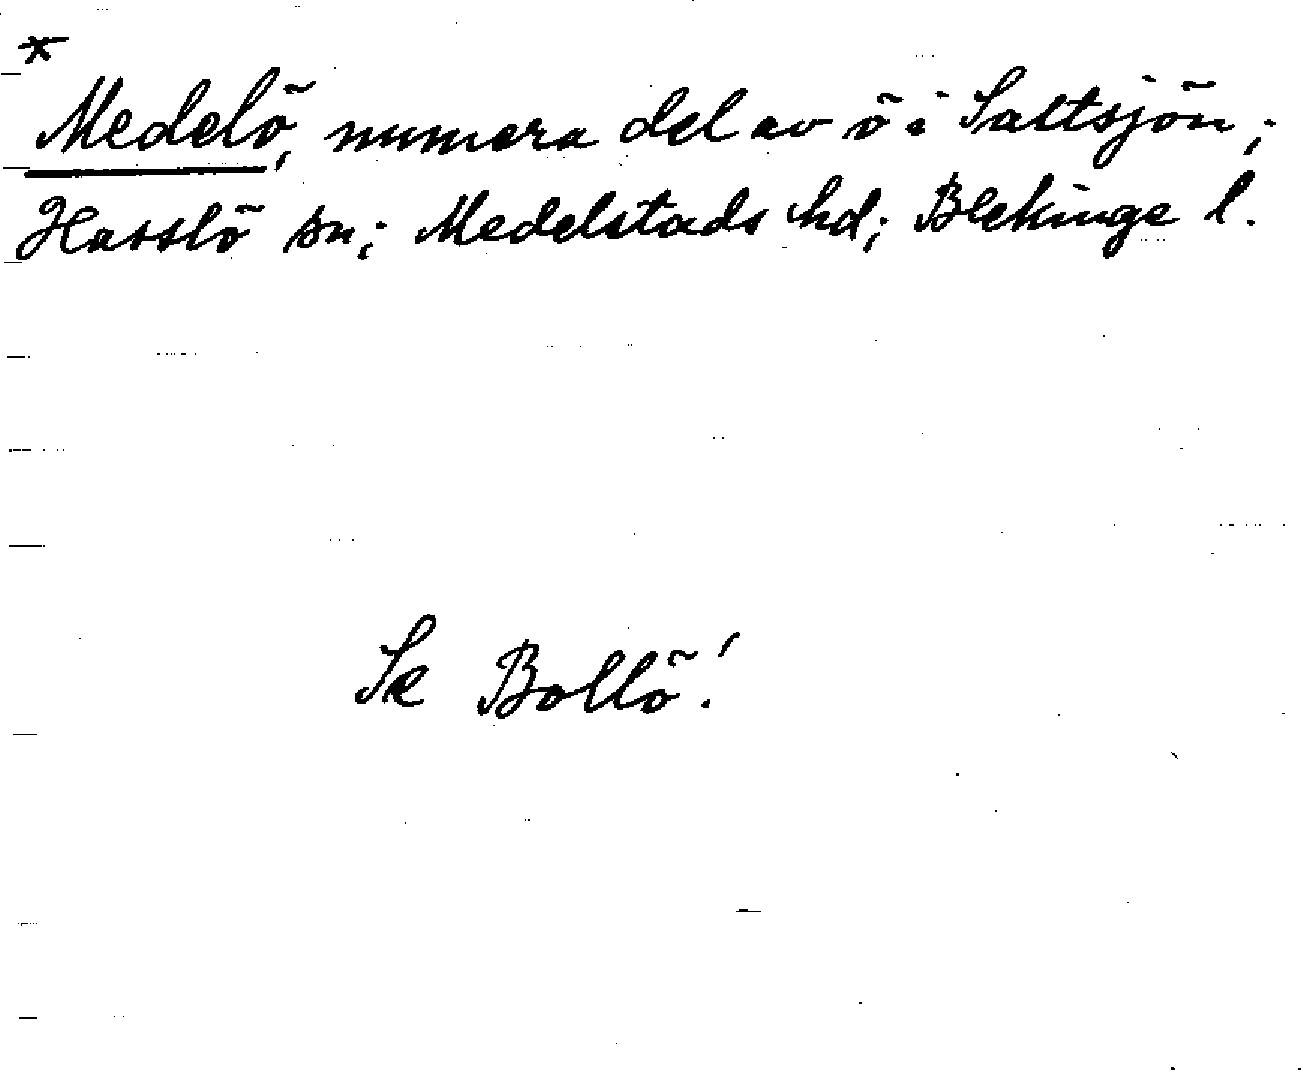 *
Medelö, numera del av ö i Saltsjön;
Hasslö sn; Medelstads hd; Blekinge l.
Se Bollö!